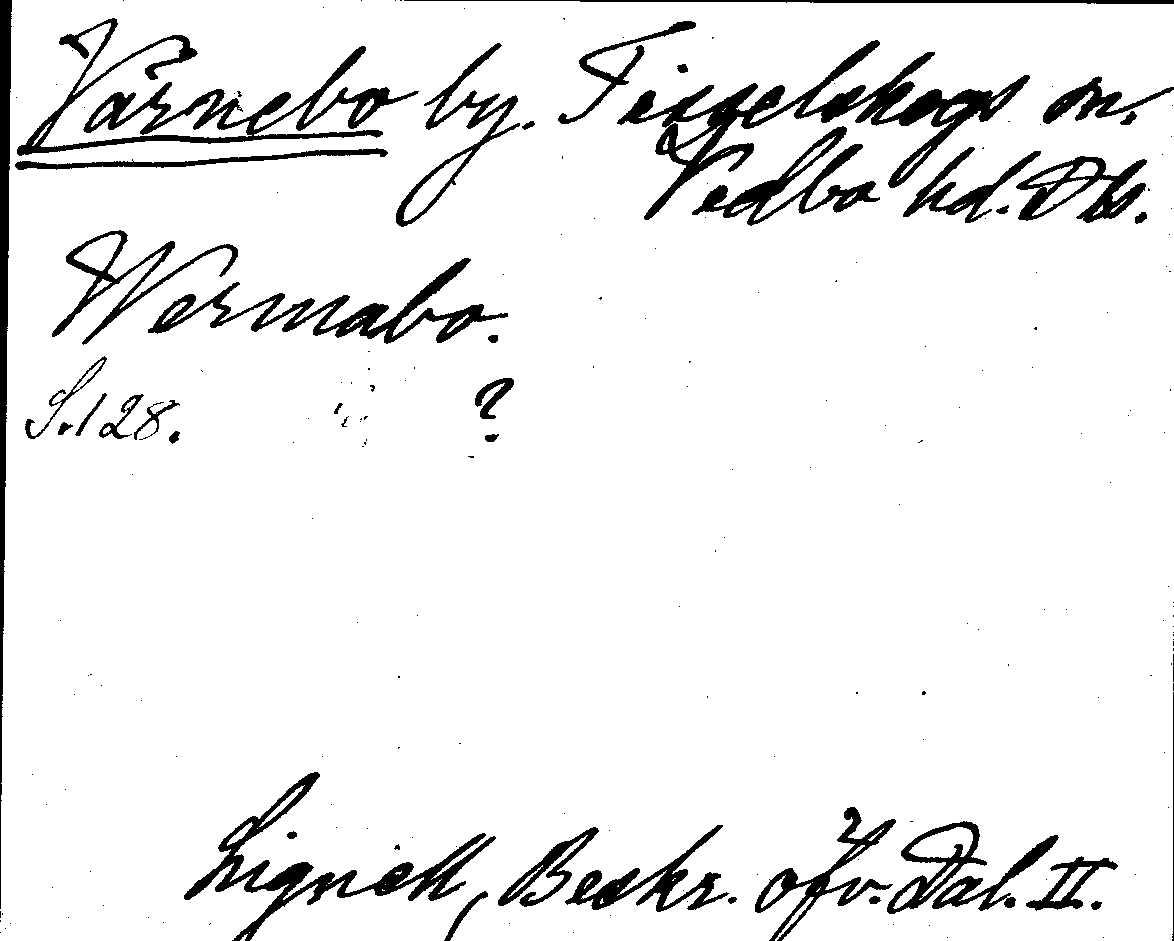 Vårnebo by. Tisselskogs sn.
Vedbo hd. Dls.
Wermabo.
S. 128. ?
Lignell, Beskr. öfv. Dal. II.